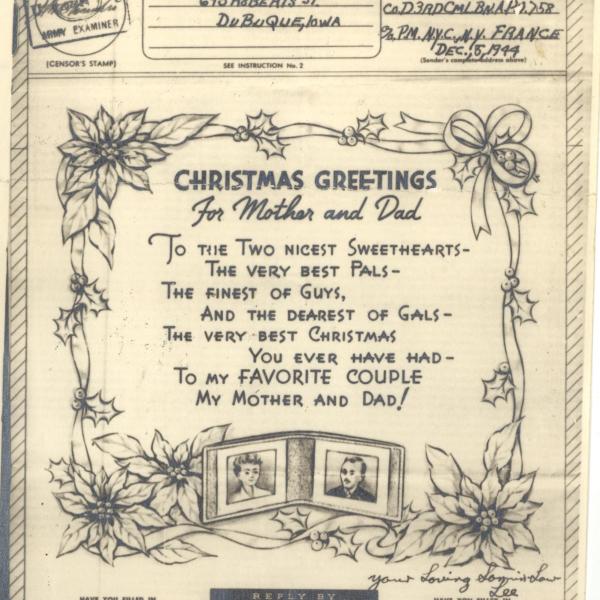 ARMY EXAMINER
(CENSOR'S STAMP)
ROBERTS ST.
DUBUQUE, IOWA
SEE INSTRUCTION No. 2
Co. D. 3RD CML BN. A.P.O. 758
℅ P.M. N.Y.C., N.Y. FRANCE
DEC., 8, 1944
(Sender's complete address above)
CHRISTMAS GREETINGS
For Mother and Dad
To the Two nicest Sweethearts-
The very best Pals-
The finest of Guys,
And the dearest of Gals-
The very best Christmas
You ever have had-
To my FAVORITE COUPLE
My Mother and Dad!
your Loving Son in Law
Lee
HAVE YOU FILLED IN
REPLY BY
HAVE YOU FILLED IN